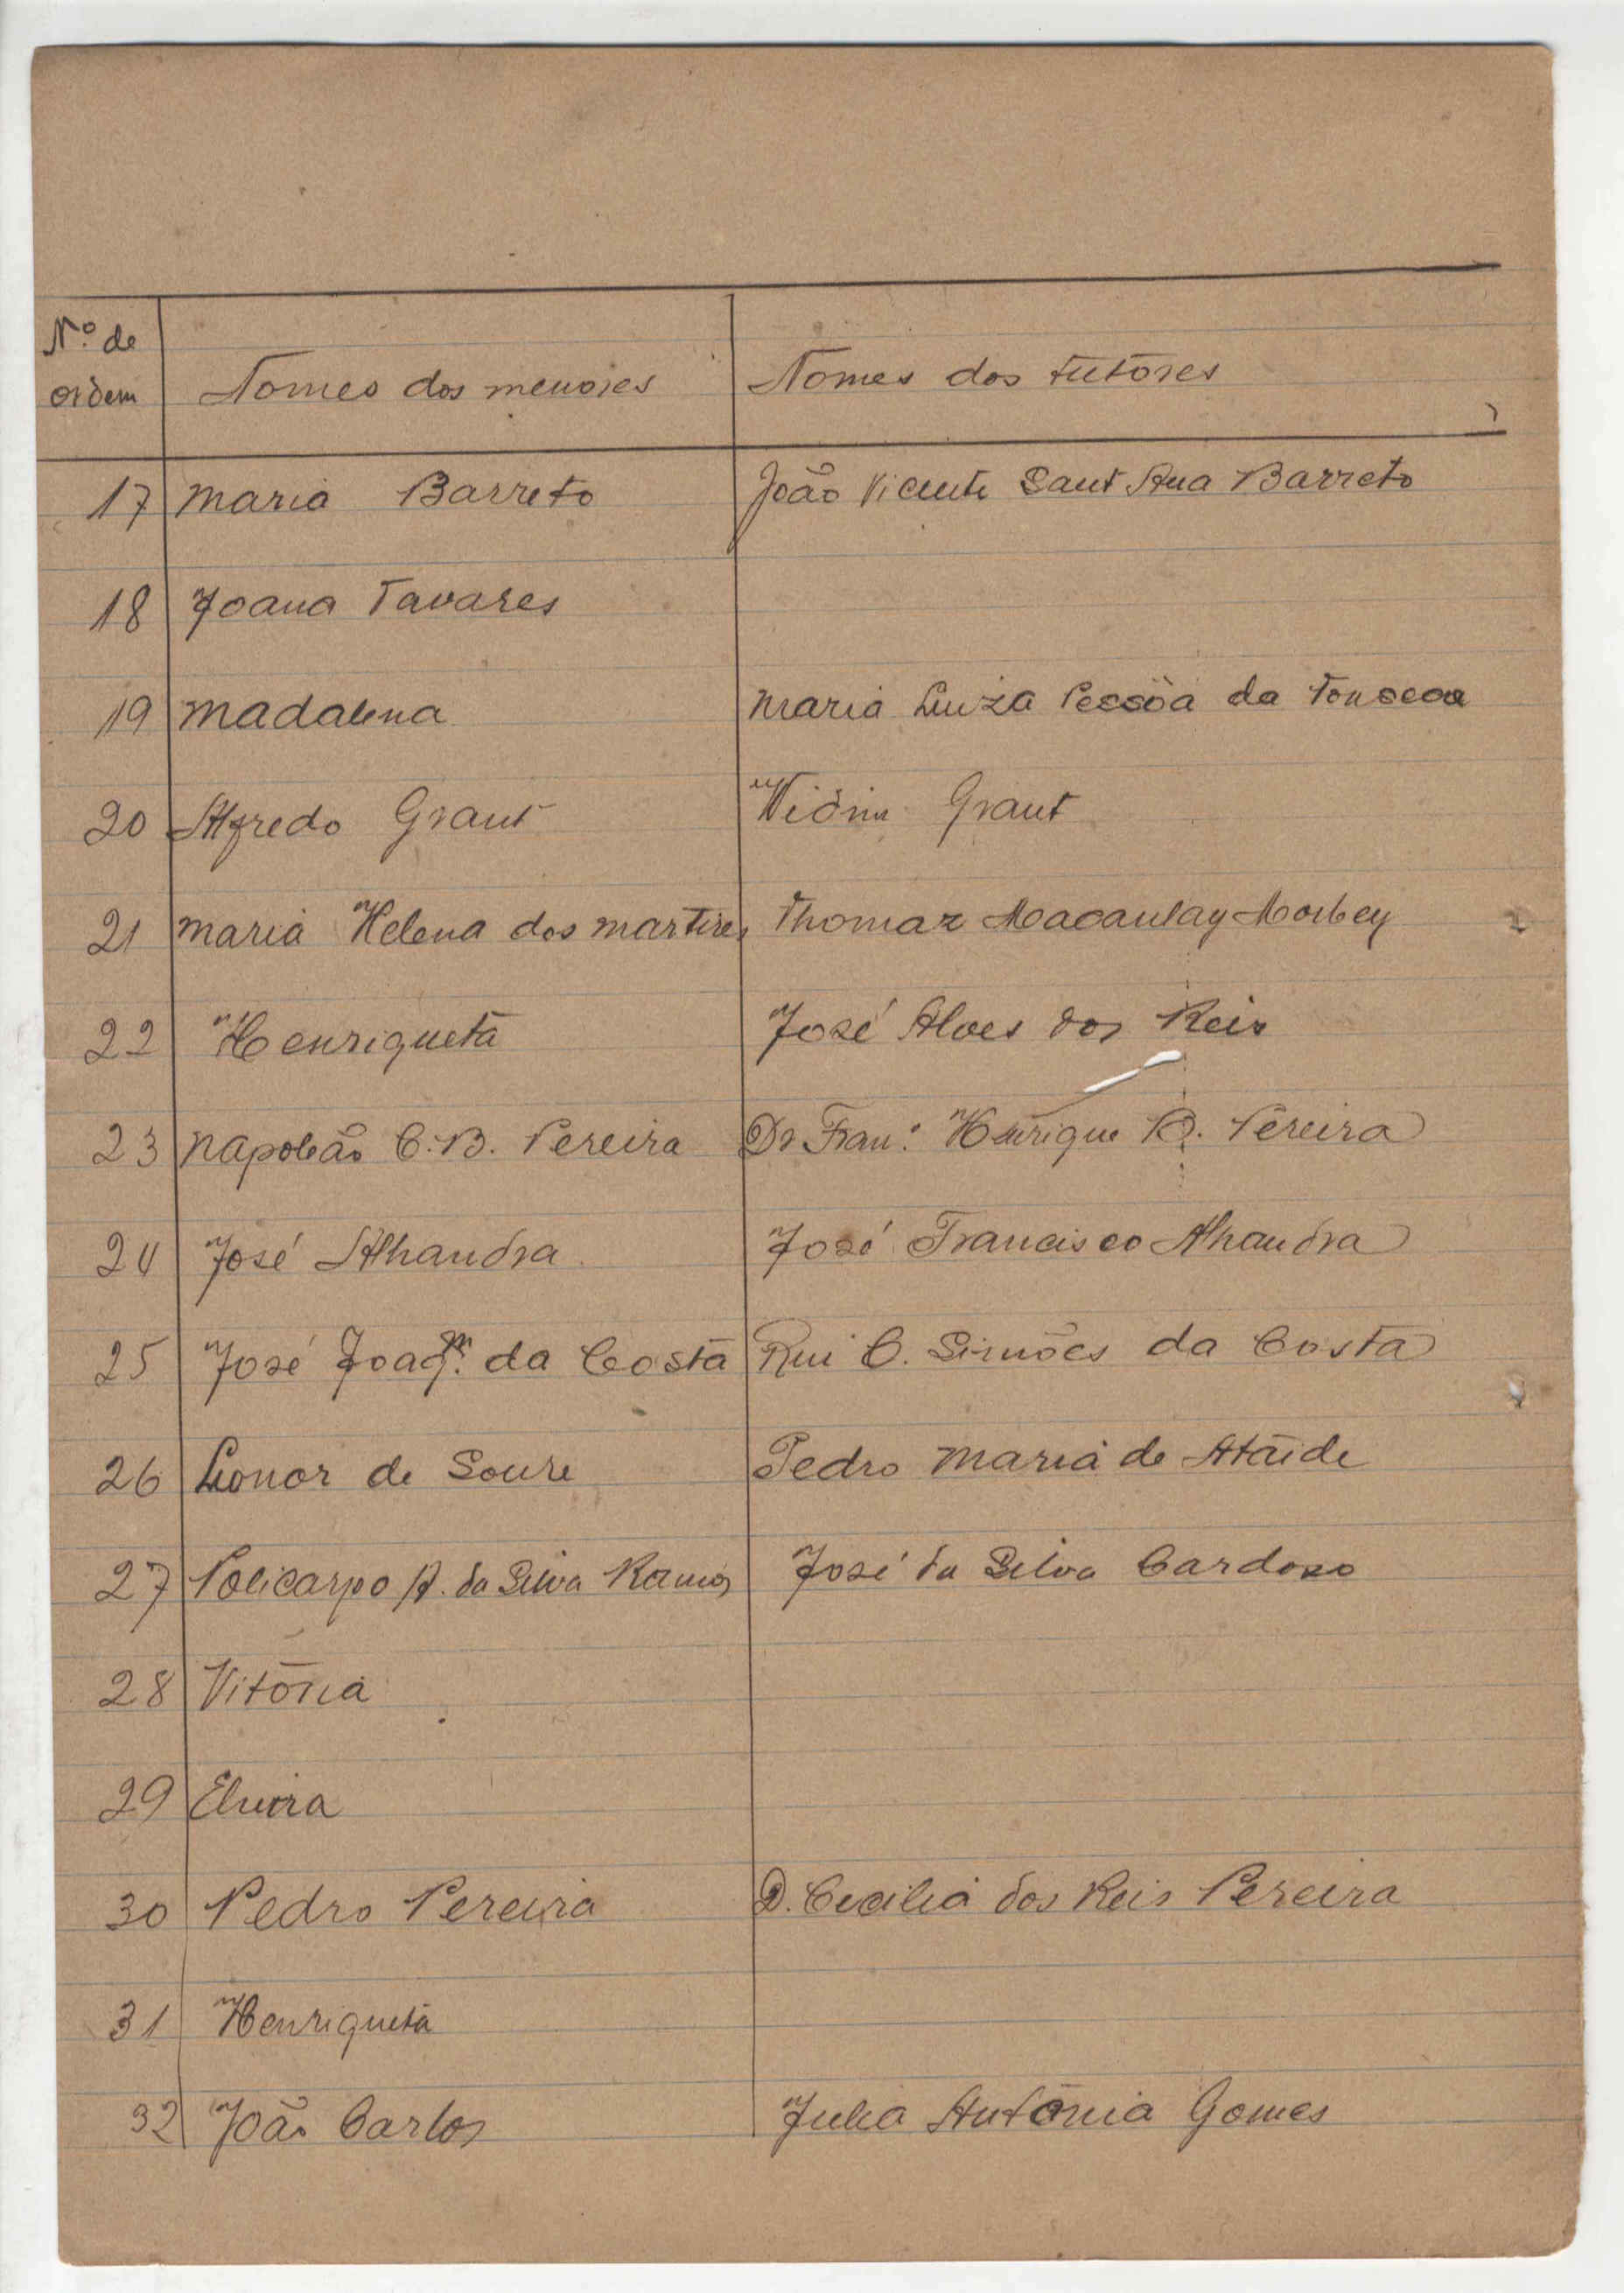 Nº de
ordem Nomes dos menores Nomes dos tutores
17 Maria Barreto João Vicente Sant Ana Barreto
18 Joana Tavares
19 Madalena Maria Luiza Pessôa da Fonseca
20 Alfredo Grant Grant
21 Maria Helena dos Martires Thomaz Macaulay Morbey
22 Henriqueta José Alves dos Reis
23 Napoleão C. B. Pereira Dr Fran.º Henrique B. Pereira
24 José Alhandra José Francisco Alhandra
25 José Joaqm. da Costa Rui C. Simões da Costa
26 Leonor de Soure Pedro Maria de Ataíde
27 Policarpo A. da Silva Ramos José da Silva Cardoso
28 Vitória
29 Elvira
30 Pedro Pereira D. Cecilia dos Reis Pereira
31 Henriqueta
32 João Carlos Julia Antónia Gomes